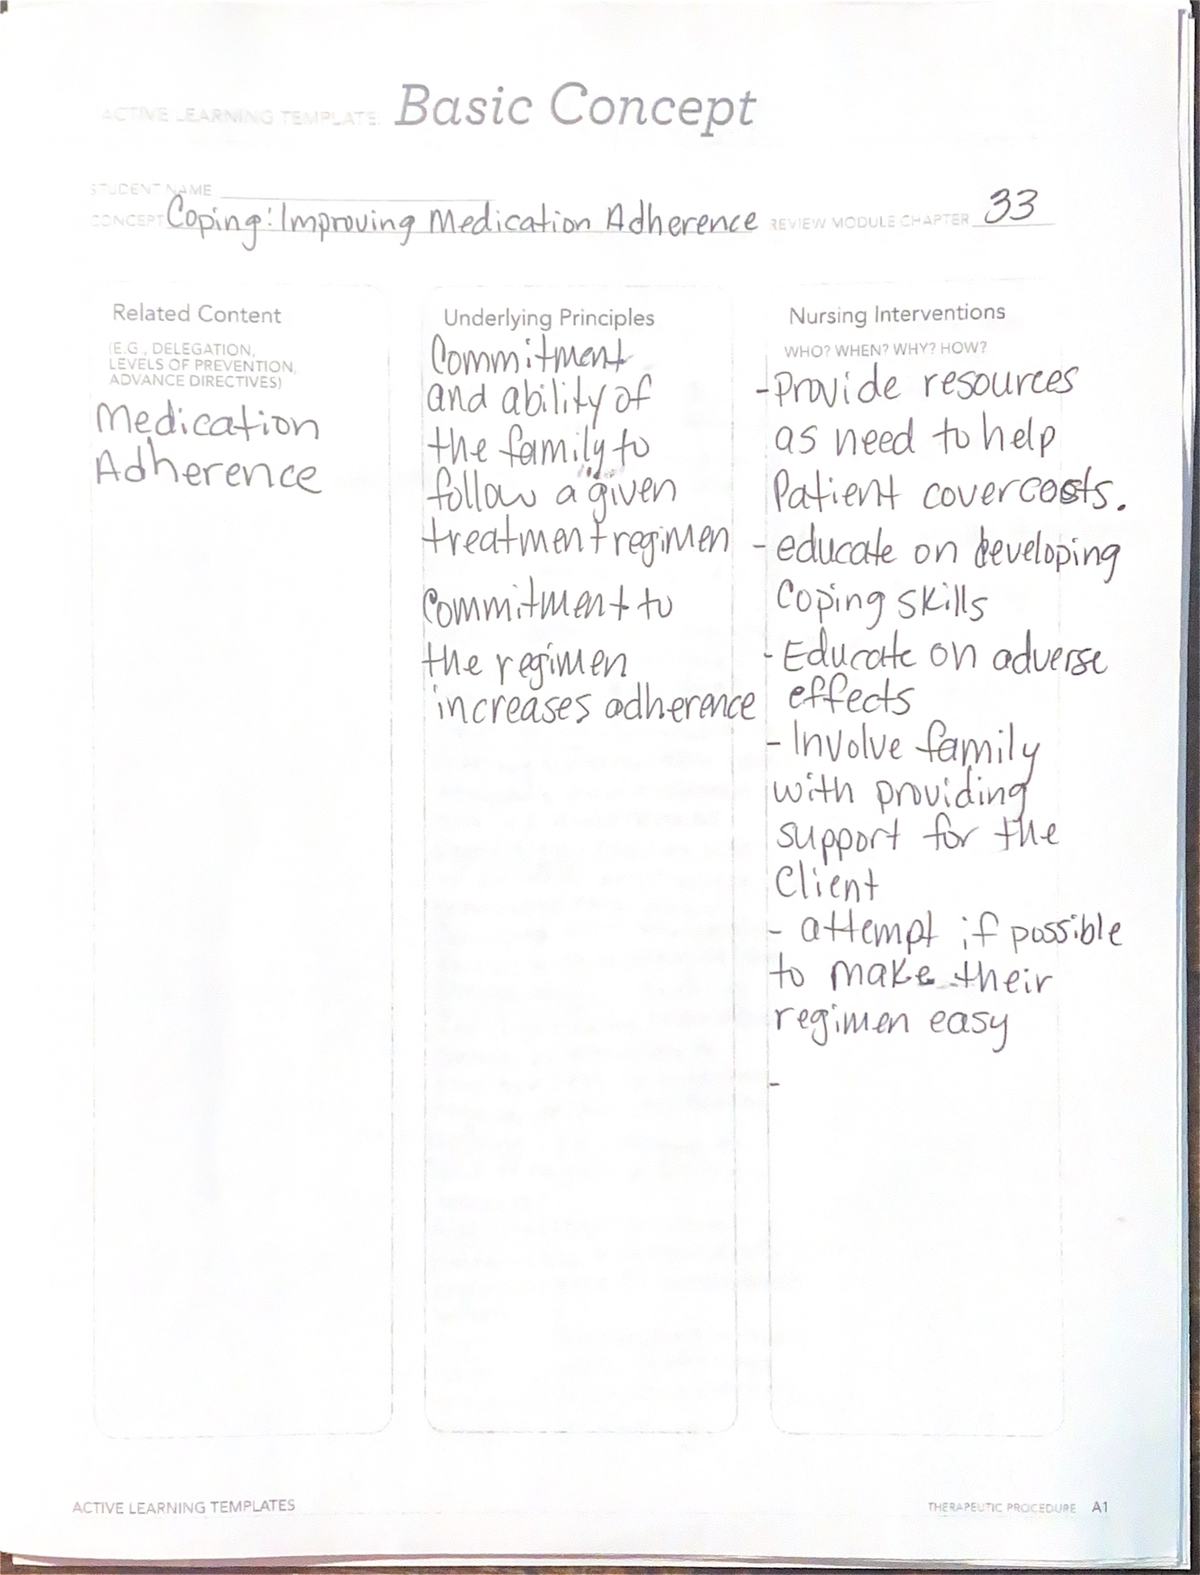 ACTIVE LEARNING TEMPLATE: Basic Concept
STUDENT NAME
CONCEPT Coping: Improving Medication Adherence REVIEW MODULE CHAPTER 33
Related Content
(E.G., DELEGATION,
LEVELS OF PREVENTION,
ADVANCE DIRECTIVES)
Medication
Adherence
Underlying Principles
Commitment
and ability of
the family to
follow a given
treatment regimen
Commitment to
the regimen
increases adherence
Nursing Interventions
WHO? WHEN? WHY? HOW?
- Provide resources
as need to help
Patient cover costs.
- educate on developing
Coping skills
- Educate on adverse
effects
- Involve family
with providing
support for the
Client
- attempt if possible
to make their
regimen easy
-
ACTIVE LEARNING TEMPLATES
THERAPEUTIC PROCEDURE A1